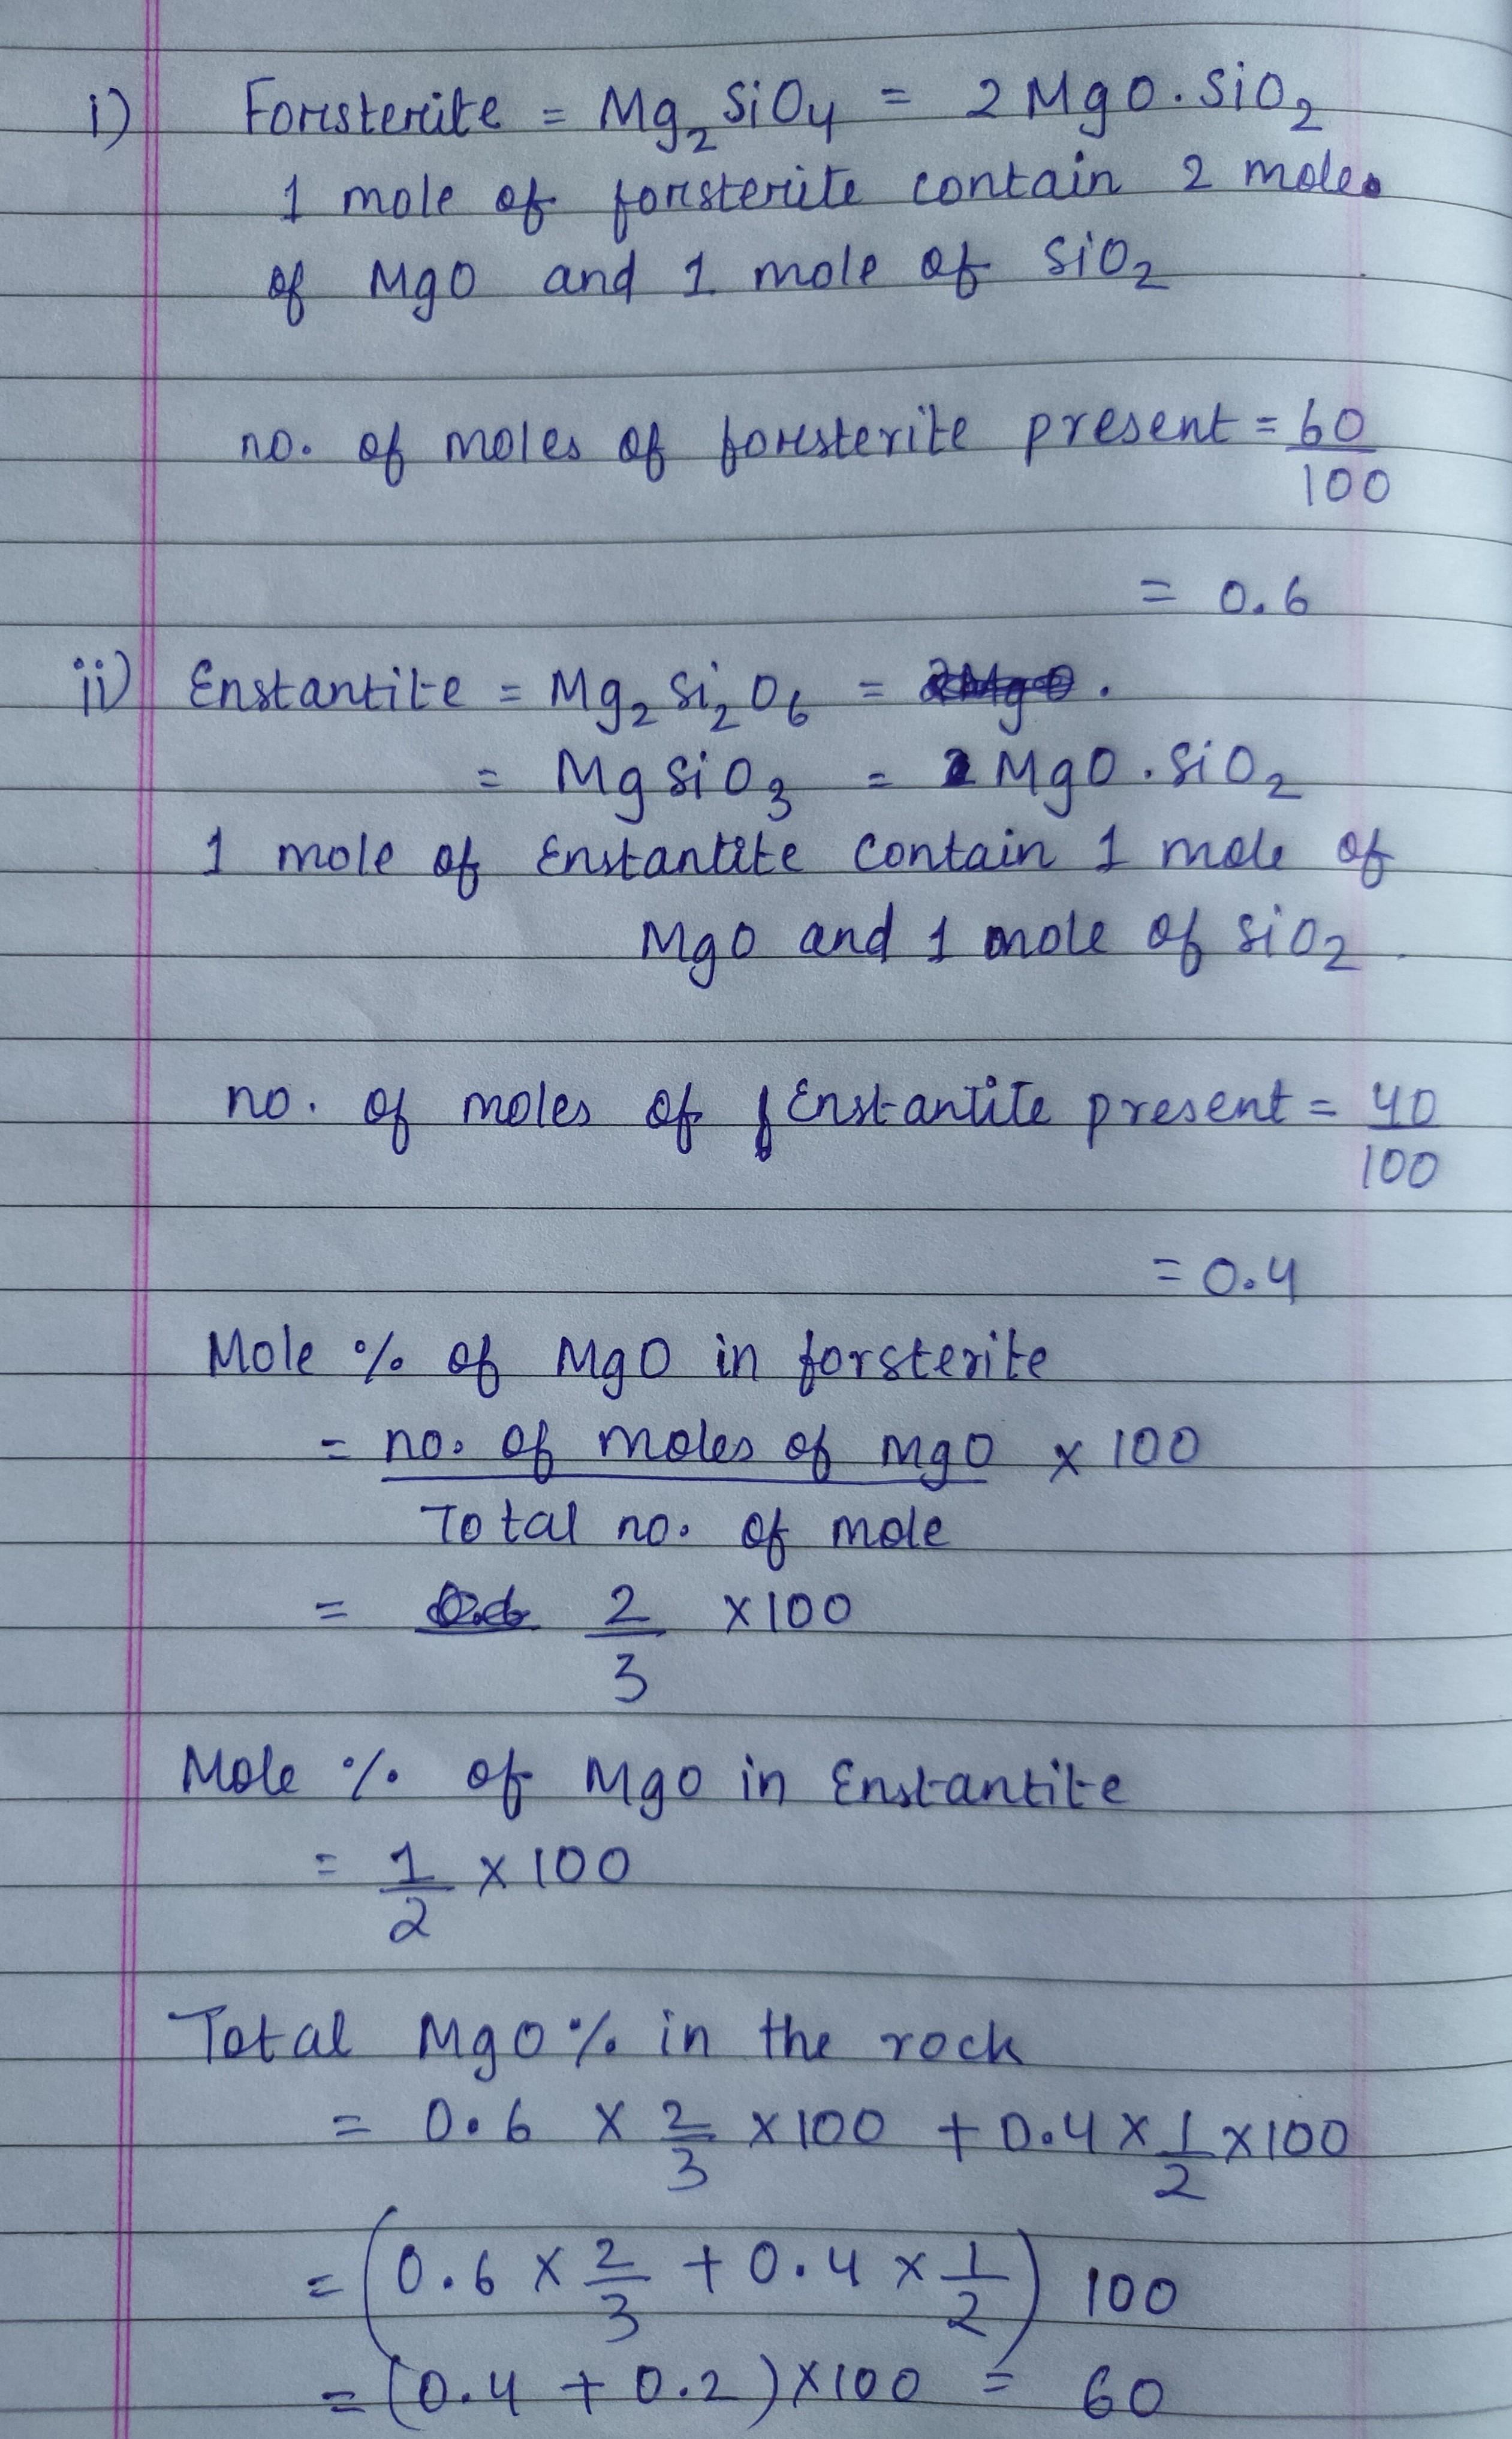 i) Forsterite = Mg₂SiO₄ = 2MgO.SiO₂
1 mole of forsterite contain 2 moles
of MgO and 1 mole of SiO₂
no. of moles of forsterite present = 60/100
= 0.6
ii) Enstantite = Mg₂Si₂O₆ = .
= MgSiO₃ = MgO.SiO₂
1 mole of Enstantite contain 1 mole of
MgO and 1 mole of SiO₂.
no. of moles of Enstantite present = 40/100
= 0.4
Mole % of MgO in forsterite
= no. of moles of MgO × 100
Total no. of mole
= 2/3 × 100
Mole % of MgO in Enstantite
= 1/2 × 100
Total MgO % in the rock
= 0.6 × 2/3 × 100 + 0.4 × 1/2 × 100
= (0.6 × 2/3 + 0.4 × 1/2) 100
= (0.4 + 0.2) × 100 = 60